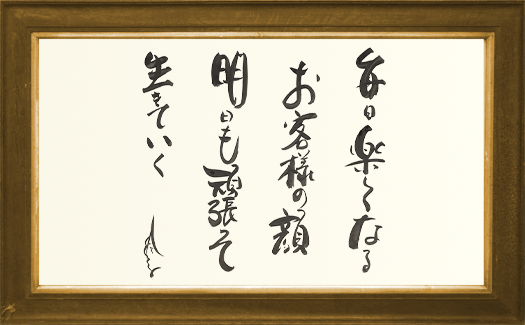 毎日楽しくなる
お客様の顔
明日も頑張って
生きていく